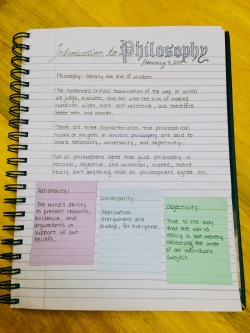 Introduction to Philosophy
February 4, 20
Philosophy: literally the love of wisdom.
· The systematic critical examination of the way in which
we judge, evaluate, and act with the aim of making
ourselves wiser, more self-reflective, and therefore
better men and women.
· There are three characteristics that philosophical
truths or insights in western philosophy are said to
share: rationality, universality, and objectivity.
· Not all philosophers agree that good philosophy is
rational, objective, and universal; indeed, there
really isn't anything that all philosophers agree on.
Rationality:
The mind's ability
to present reasons,
evidence, and
arguments in
support of our
beliefs.
Universality:
Application
everywhere and
always, for everyone.
Objectivity:
True to the way
that the world
really is, not merely
reflecting the whim
of an individual
subject.